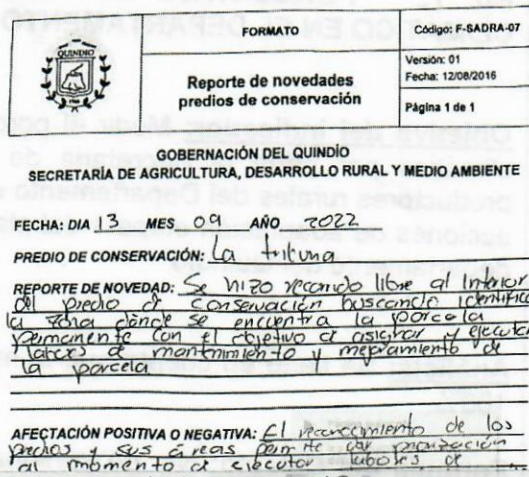 QUINDÍO
FORMATO
Código: F-SADRA-07
Versión: 01
Fecha: 12/08/2016
Reporte de novedades
predios de conservación
Página 1 de 1
GOBERNACIÓN DEL QUINDÍO
SECRETARÍA DE AGRICULTURA, DESARROLLO RURAL Y MEDIO AMBIENTE
FECHA: DIA 13 MES 09 AÑO 2022
PREDIO DE CONSERVACIÓN: La tribuna
REPORTE DE NOVEDAD: Se hizo recorrido libre al Interior
del predio de conservación buscando identificar
la zona dónde se encuentra la parcela
permanente con el objetivo de asignar y ejecutar
labor de mantenimiento y mejoramiento de
la parcela
AFECTACIÓN POSITIVA O NEGATIVA: El reconocimiento de los
predios y sus áreas permite dar priorización
al momento de ejecutar labores de